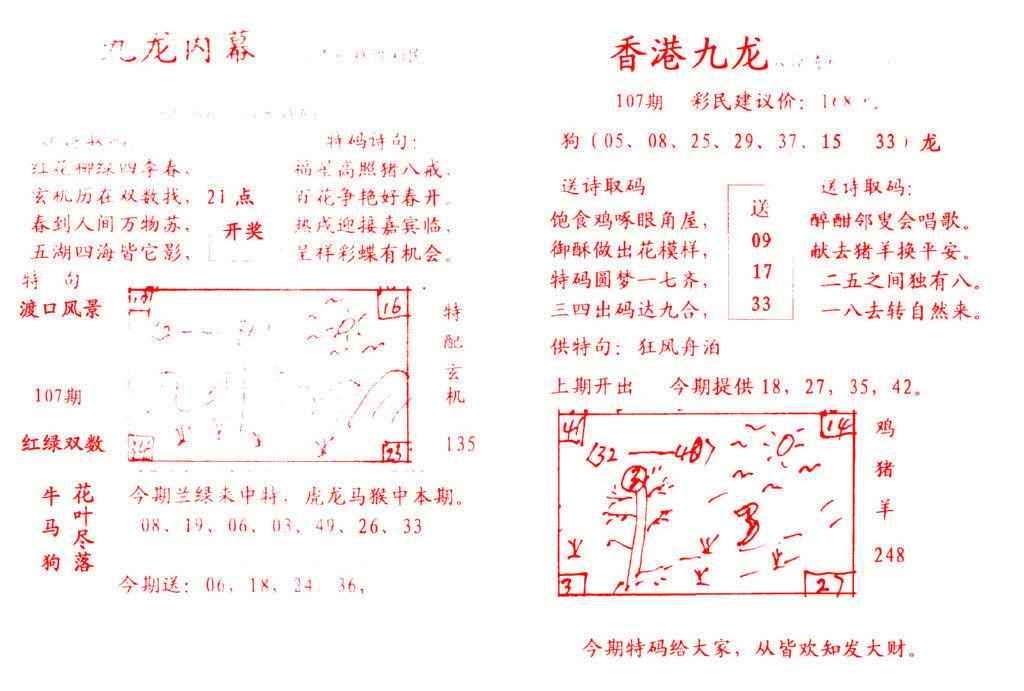 九龙内幕
特码诗句：
红花柳绿四季春，
玄机历在双数找，
春到人间万物苏，
五湖四海皆它影，
21点
开奖
福星高照猪八戒，
百花争艳好春开。
热戌迎接嘉宾临，
呈祥彩蝶有机会。
特 句
渡口风景
107期
红绿双数
16
23
特配玄机
135
牛马狗
花叶尽落
今期兰绿来中特，虎龙马猴中本期。
08、19、06、03、49、26、33
今期送：06，18，24 36，
香港九龙
107期 彩民建议价：
狗（05、08、25、29、37．15 33）龙
送诗取码
饱食鸡啄眼角屋，
御酥做出花模样，
特码圆梦一七齐，
三四出码达九合，
送
09
17
33
送诗取码：
醉酣邻叟会唱歌。
献去猪羊换平安。
二五之间独有八。
一八去转自然来。
供特句：狂风舟泊
上期开出 今期提供18，27，35，42。
41
14
3
27
鸡
猪
羊
248
今期特码给大家，从皆欢知发大财。